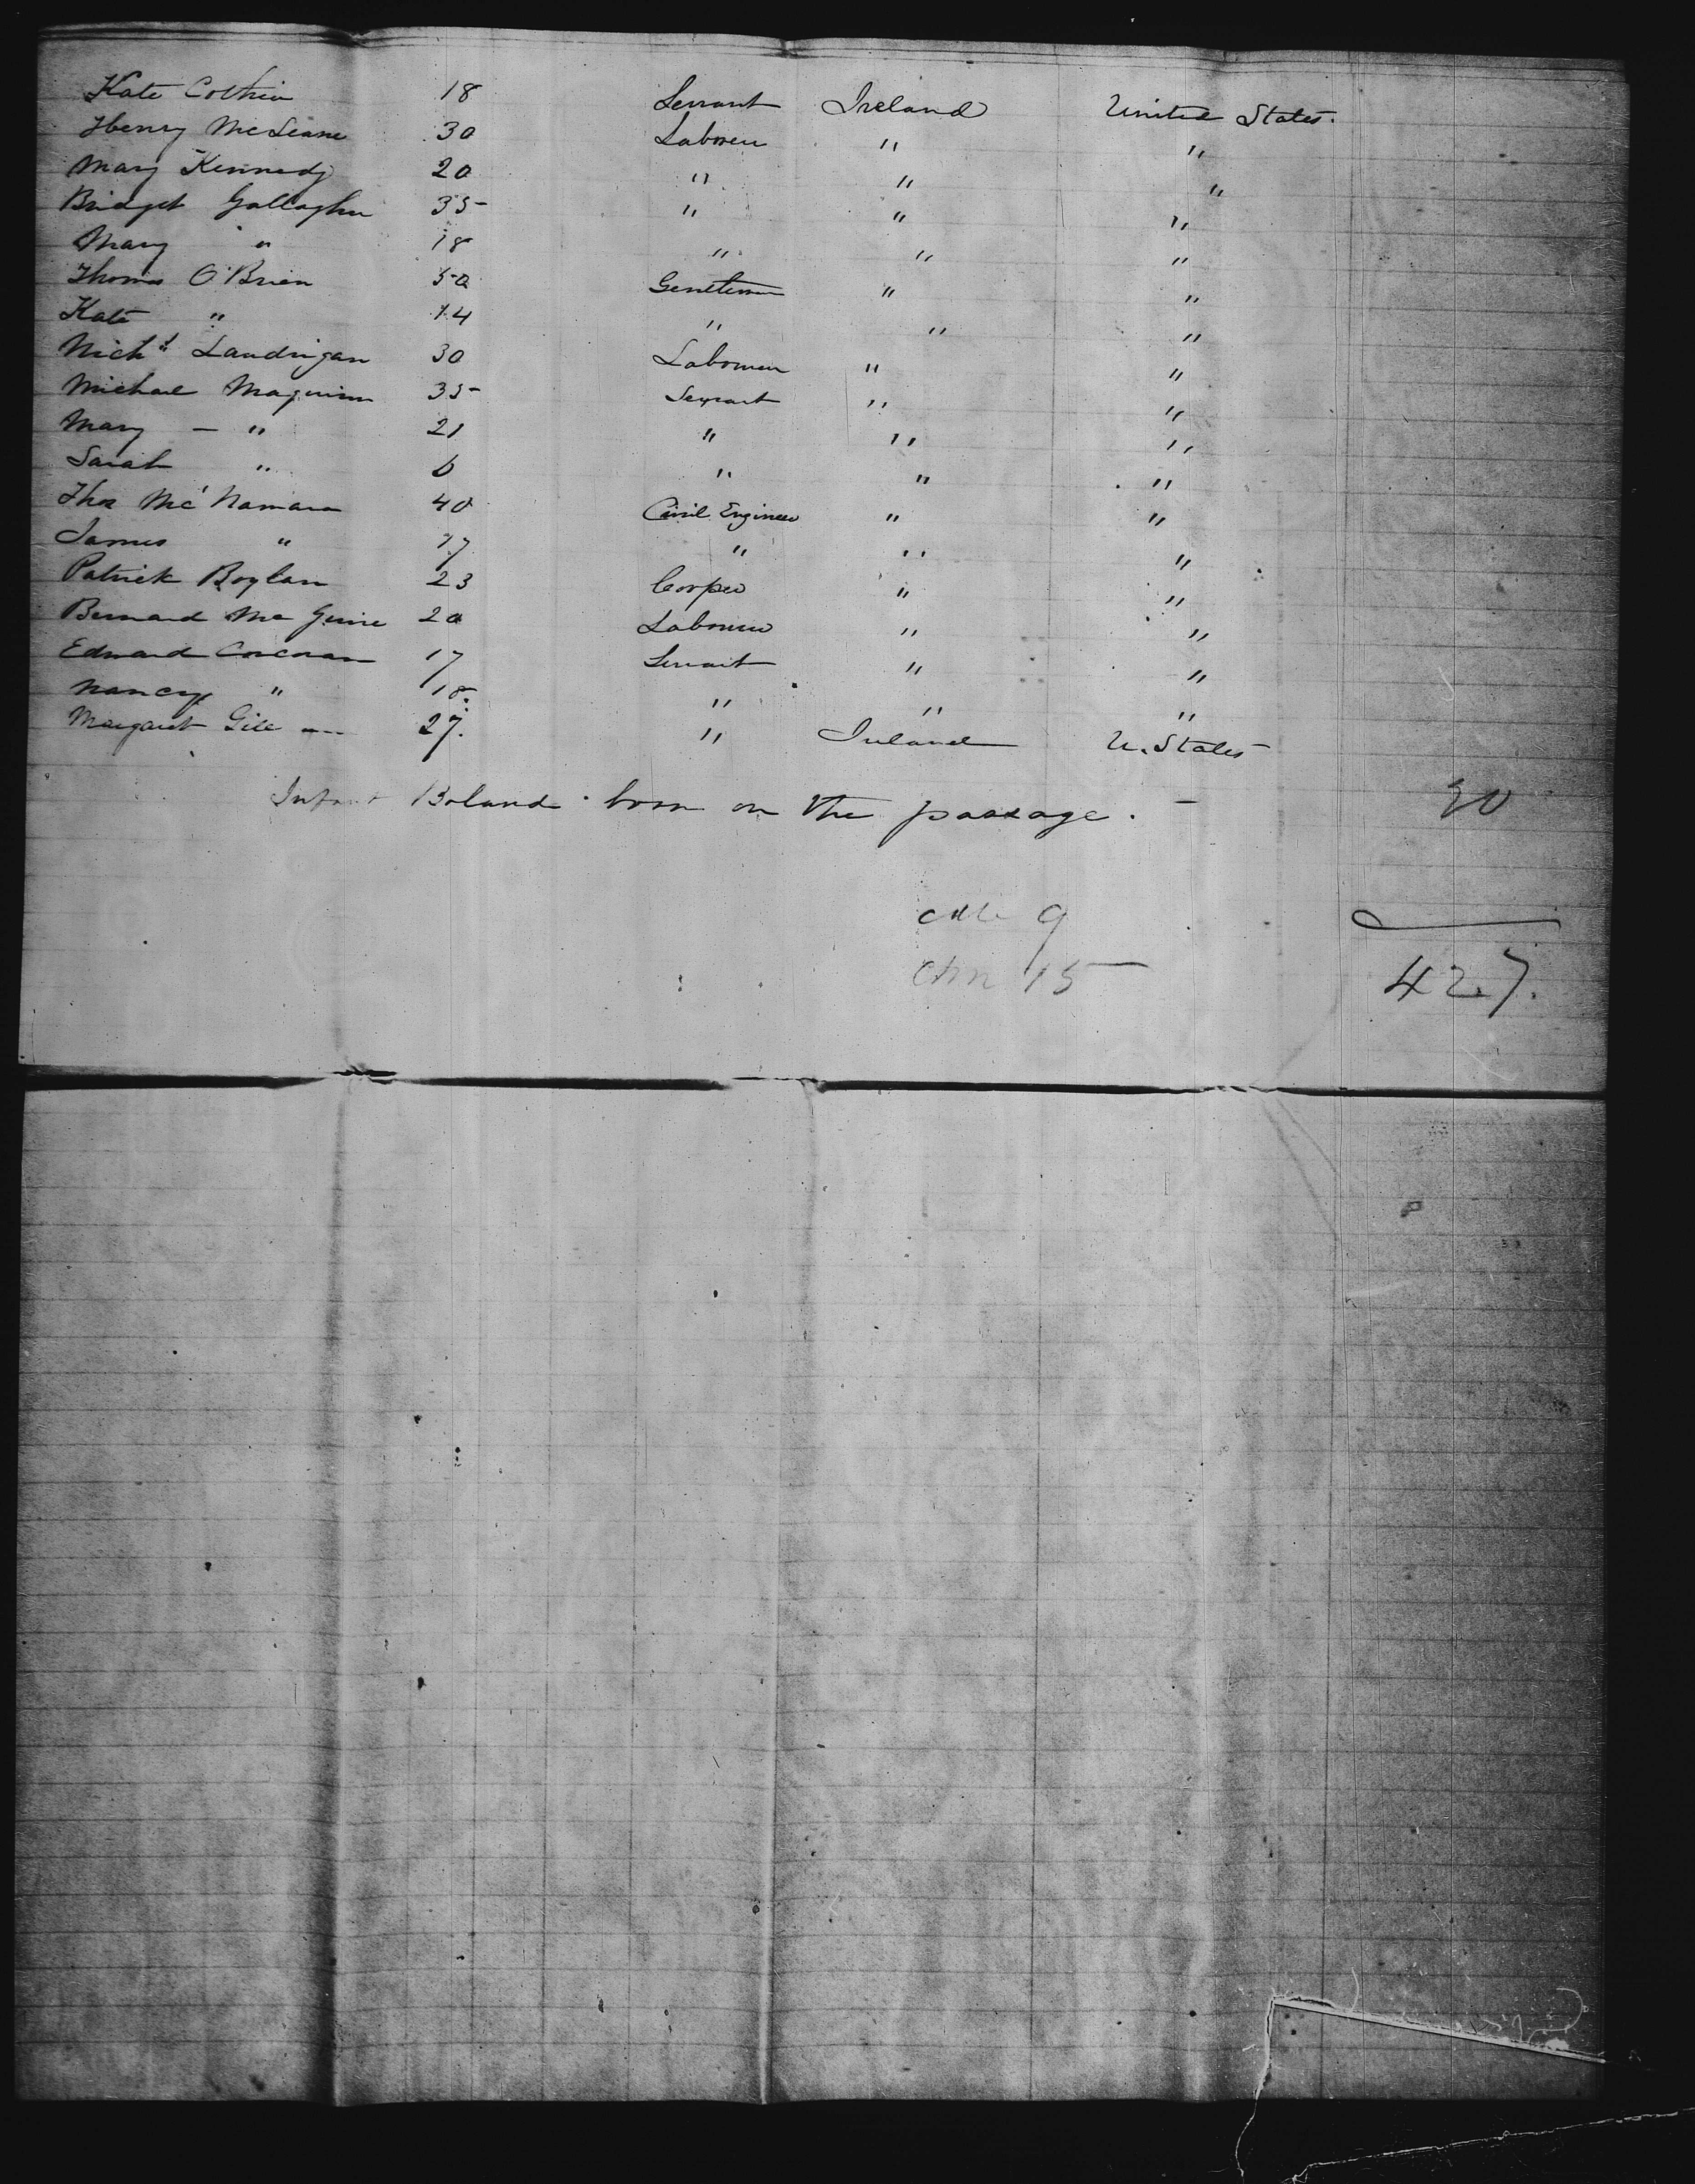 Kate 18 Servant Ireland United States.
Henry 30 Labourer " "
Mary Kennedy 20 " " "
Bridget Gallagher 35 " " "
Mary " 18 " " "
Thomas O'Brien 50 Gentleman " "
Kate " 14 " " "
Landrigan 30 Labourer " "
Michael 35 Servant " "
Mary – " 21 " " "
Sarah " 6 " " "
Thos McNamara 40 Civil Engineer " "
James " 17 " " "
Patrick Boylan 23 Cooper " "
Bernard Mc Guire 20 Labourer " "
Edward Corcoran 17 Servant " "
Nancy " 18. " " "
Margaret Gill 27. " Ireland U. States
Infant Boland born on the passage. – 20
9
15
427.